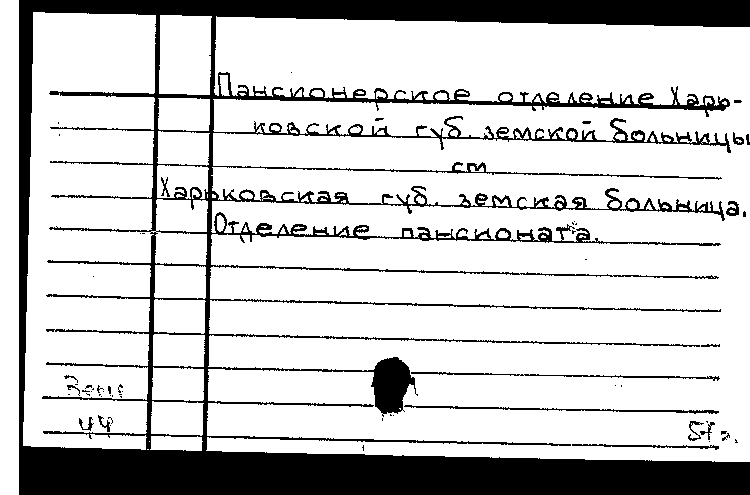 Пансионерское отделение Харь-
ковской губ. земской больницы
см.
Харьковская губ. земская больница.
Отделение пансионата.
44
57 г.